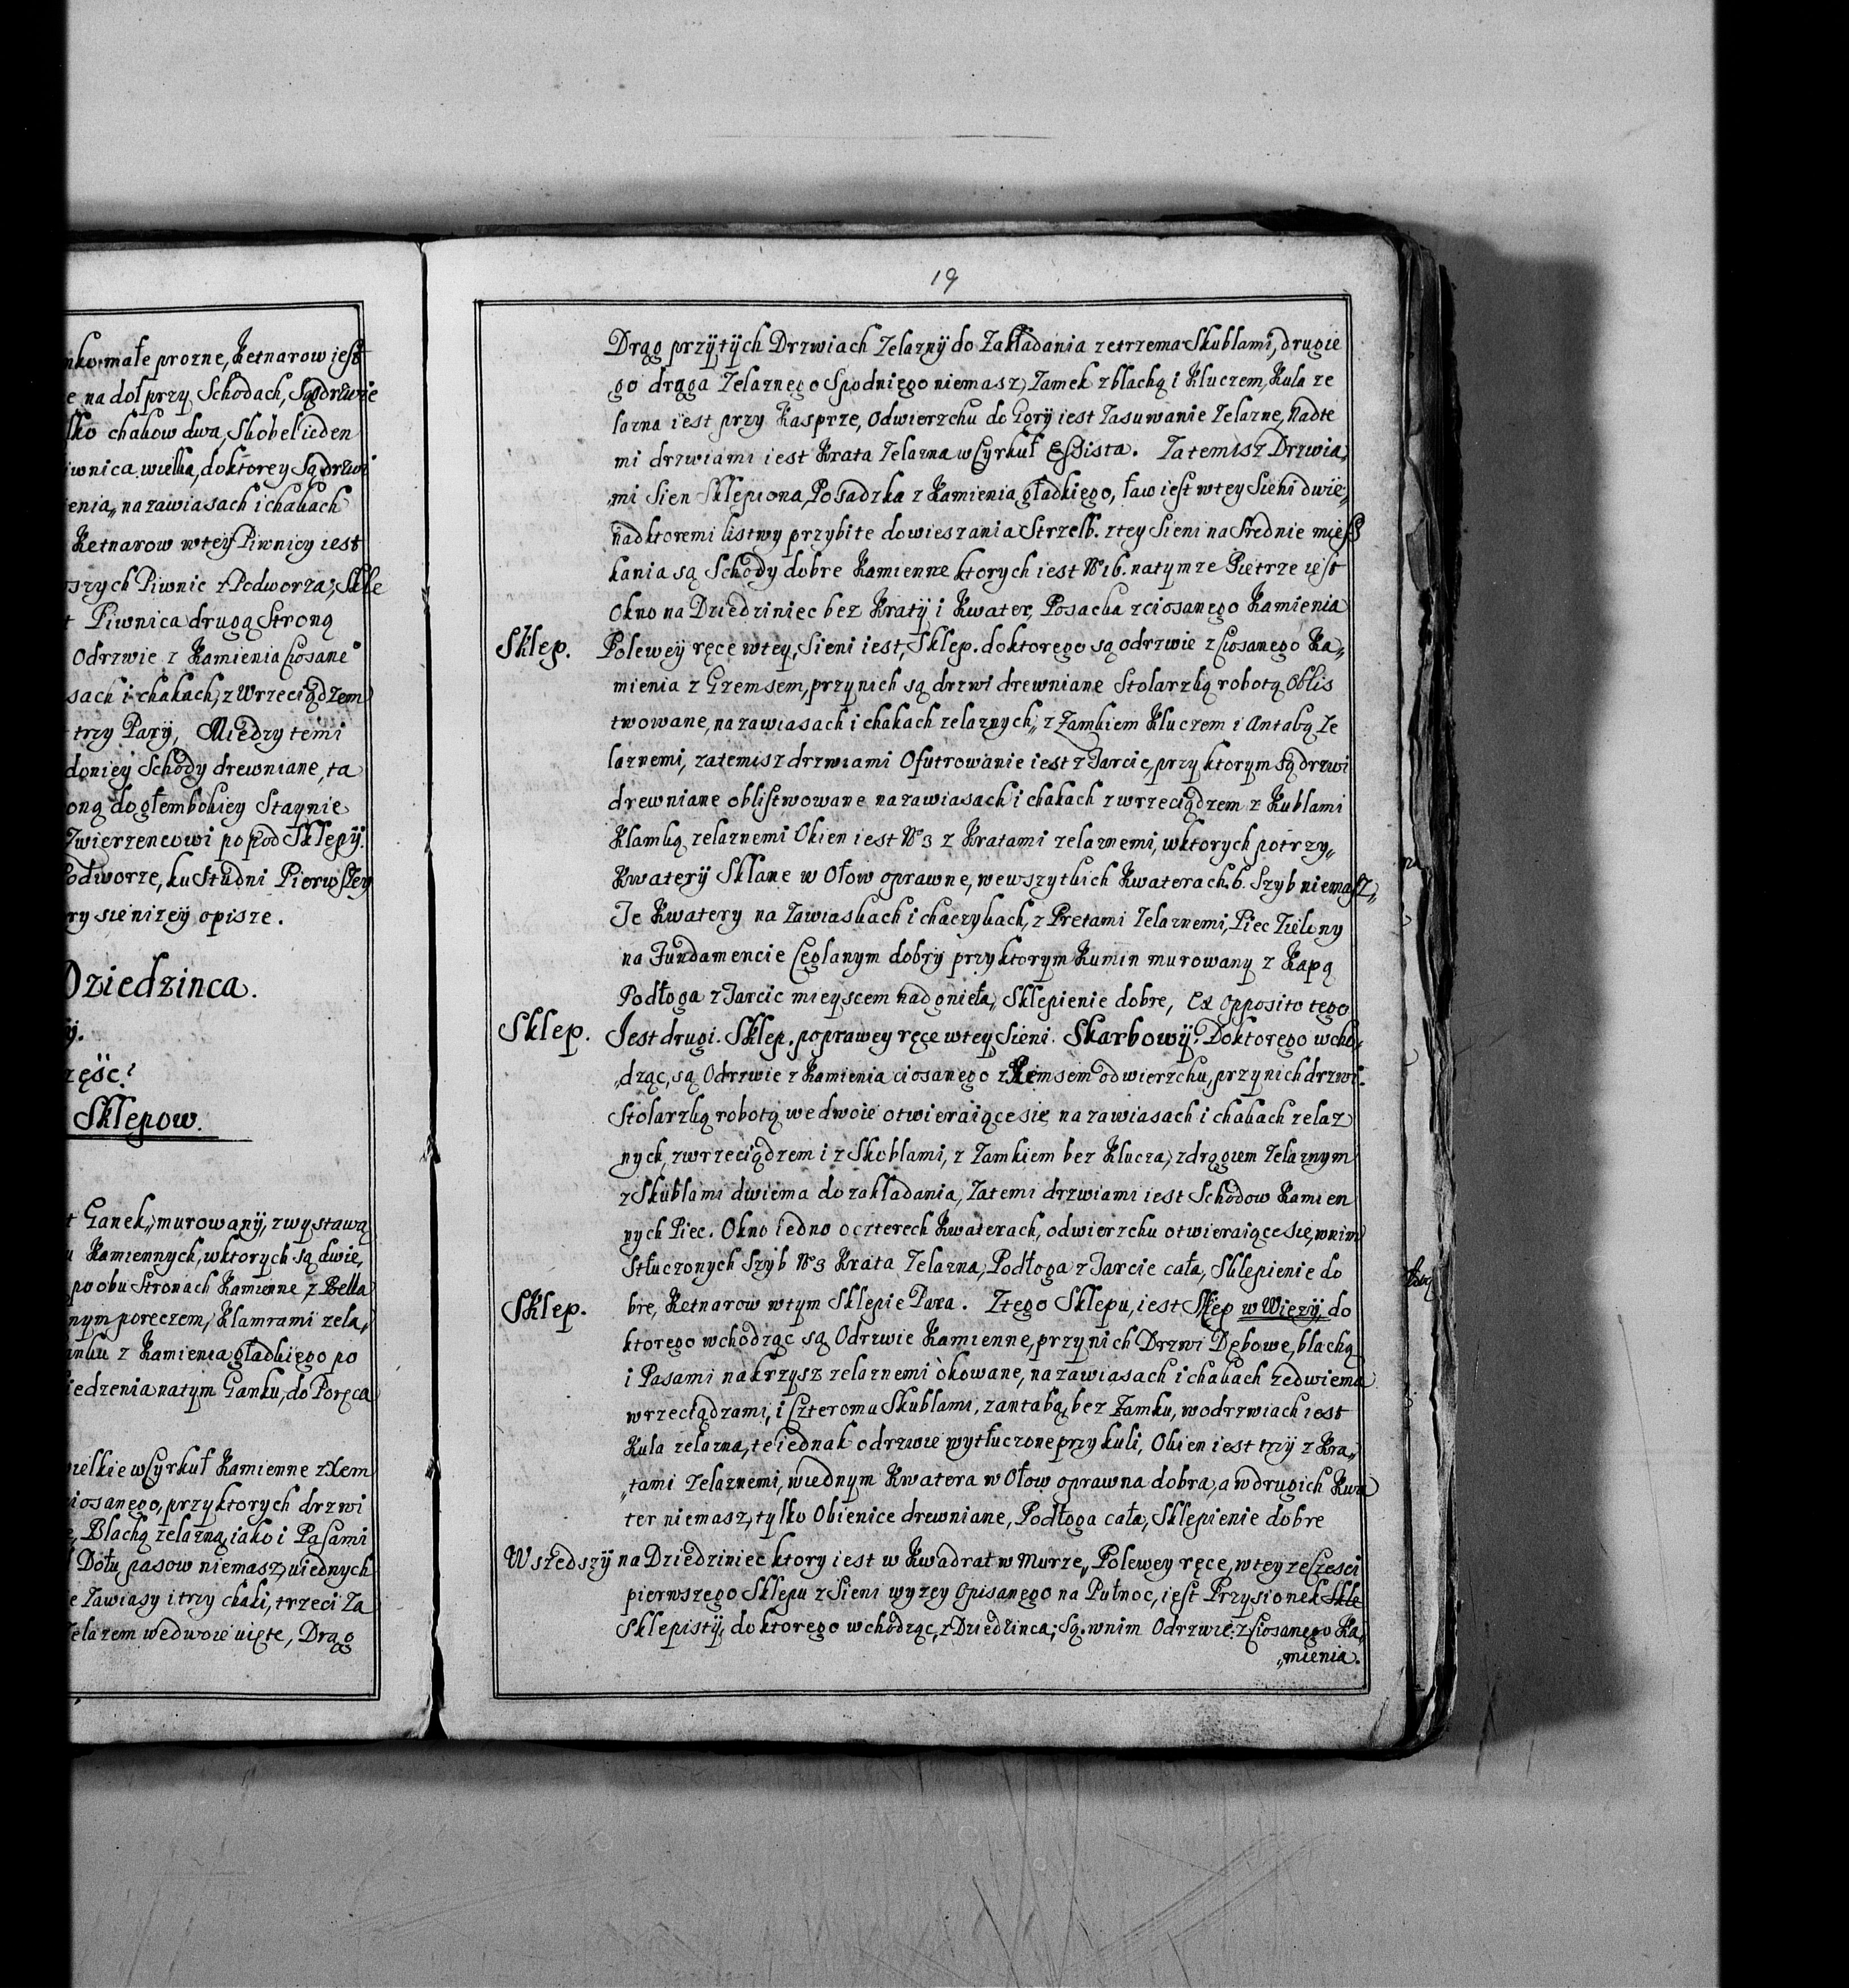 nko małe prozne, Ketnarow jest
e na doł przy Schodach, Są drzwie
lko chakow dwa, Skobel ieden
iwnica wielka, do ktorey Są drzwi
ienia„ na zawiasach i chakach
Ketnarow w tey Piwnicy iest
szych Piwnic z Podworza; Skle
t Piwnica drugą Stroną
Odrzwie z Kamienia Ciosane
sach i chakach, z Wrzeciądzem
trzy Pary, Miedzy temi
do niey Schody drewniane, ta
oną do głembokiey Staynie
Zwierzencowi po pod Sklepÿ.
Podworze, ku Studni Pierwszey
ry sie nizeÿ opisze.
Dziedzinca.
ÿ.
zęśc?
Sklepow.
t Ganek„ murowanÿ, z wystawą
u Kamiennych, w ktorych są dwie,
po obu Stronach Kamienne, z Belka
nym poreczem, Klamrami zela„
anku z Kamienia gładkiego po
iedzenia na tym Ganku, do Poręca
wielkie w Cyrkuł Kamienne z Xem
iosanego, przy ktorych drzwi
ę, Blachą zelazną, iako i Pasami
Dołu pasow niemasz, u iednych
e Zawiasy i trzy chaki, trzeci Za
Zelazem we dwoie uięte, Drąg
19
Drąg przÿ tÿch Drzwiach Zelaznÿ do Zakładania ze trzema Skublami, drugie
go drąga Zelaznego Spodniego niemasz, Zamek z blachą i Kluczem, Kula ze
lazna iest przy Kasprze, Odwierzchu do Gorÿ iest Zasuwanie Zelazne, Nad te
mi drzwiami iest Krata Zelazna w Cyrkuł Essista. Za temisz Drzwia„
mi Sien Sklepiona, Posadzka z Kamienia gładkiego, ław iest w tey Sieni dwie„
nad ktoremi listwy przybite do wieszania Strzelb. z tey Sieni na Srednie miesz
kania są Schody dobre Kamienne ktorych iest No 16. na tymze Pietrze iest
Okno na Dziedziniec bez Kratÿ i Kwater, Posacka z ciosanego Kamienia
Sklep. Po lewey ręce w tey, Sieni iest, Sklep. do ktorego są odrzwie z Ciosanego Ka„
mienia z Gzemsem, przy nich są drzwi drewniane Stolarzką robotą Oblis
twowane, na zawiasach i chakach zelaznych„ z Zamkiem Kluczem i Antabą Ze
laznemi, za temisz drzwiami Ofutrowanie iest z Tarcic, przy ktorym są drzwi
drewniane oblistwowane na zawiasach i chakach z wrzeciądzem z Kublami
Klamką zelaznemi Okien iest No 3 z Kratami zelaznemi, w ktorych po trzy„
Kwaterÿ Sklane w Ołow oprawne, we wszytkich Kwaterach. 6. Szyb niemasz„
Te Kwatery na Zawiaskach i chaczykach, z Pretami Zelaznemi, Piec Zielony
na Fundamencie Ceglanym dobry przy ktorym Kumin murowany z Kapą
Podłoga z Tarcic mieyscem nadgnieła, Sklepienie dobre, Ex Opposito tego
Sklep. Jest drugi. Sklep. po prawey ręce w tey Sieni. Skarbowÿ. Do ktorego wcho„
„dząc, są Odrzwie z Kamienia ciosanego z Xemsem od wierzchu, przy nich drzwi.
Stolarzką robotą we dwoie otwieraiące się na zawiasach i chakach zelaz
nych, z wrzeciądzem i z Skoblami, z Zamkiem bez Klucza, z drągiem Zelaznym
z Skublami dwiema do zakładania, Za temi drzwiami iest Schodow Kamien
nych Piec. Okno iedno o czterech Kwaterach, odwierzchu otwieraiące sie, w nim
Stłuczonych Szyb No 3 Krata Zelazna, Podłoga z Tarcic cała, Sklepienie do
Sklep. bre, Ketnarow w tym Sklepie Para. Z tego Sklepu, iest Sklep w Wiezÿ, do
ktorego wchodząc są Odrzwie Kamienne, przy nich Drzwi Dębowe, blachą
i Pasami na krzysz zelaznemi okowane, na zawiasach i chakach ze dwiema
wrzeciądzami, i Czteroma Skublami, z antabą, bez Zamku, w odrzwiach iest
Kula zelazna, te iednak odrzwie wytłuczone przy kuli, Okien iest trzÿ z Kra„
„tami Zelaznemi, w iednym Kwatera w Ołow oprawna dobra, a w drugich Kwa
ter niemasz, tylko Okienice drewniane, Podłoga cała, Sklepienie dobre
Wszedszÿ na Dziedziniec ktory iest w Kwadrat w Murze„ Po lewey ręce, w teyze Czesci
pierwszego Sklepu z Sieni wyzey Opisanego na Pułnoc, iest Przysionek Skle
Sklepistÿ, do ktorego wchodząc, z Dziedzinca; Są. w nim Odrzwie. z Ciosanego Ka„
„mienia.